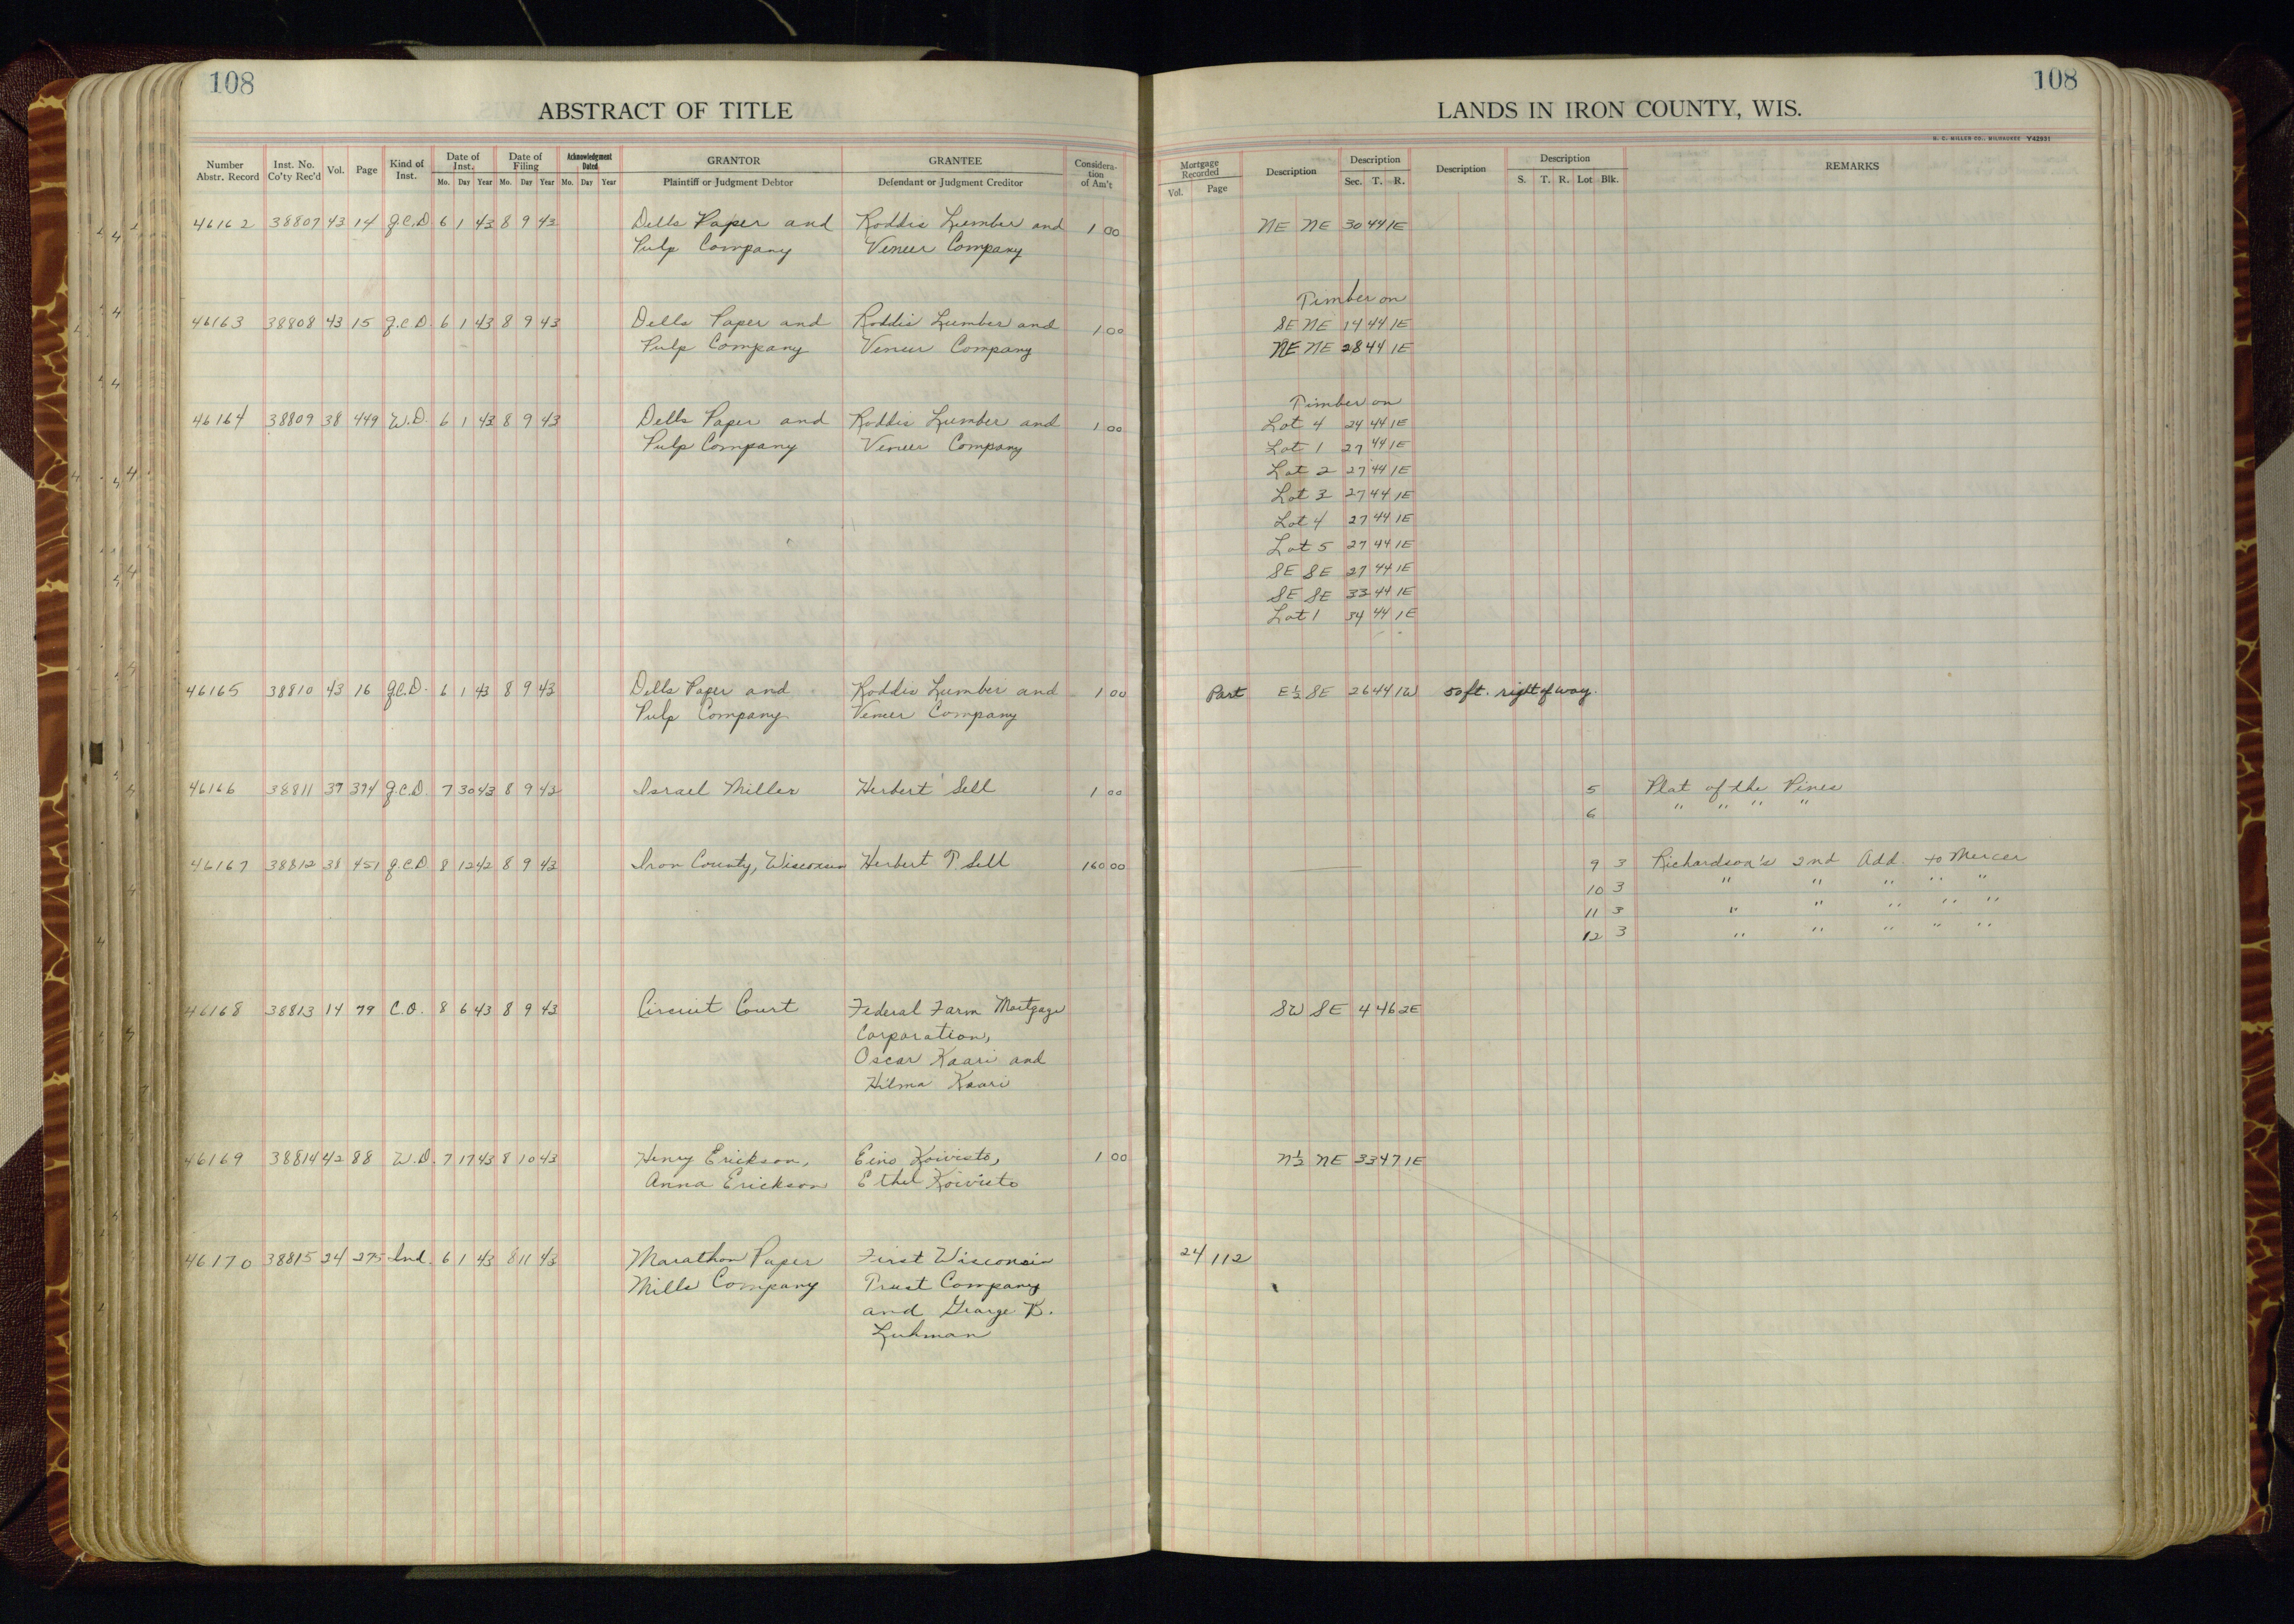 108
108
ABSTRACT OF TITLE
LANDS IN IRON COUNTY, WIS.
H. C. MILLER CO., MILWAUKEE Y42931
Number Abstr. Record
Inst. No. Co'ty Rec'd
Vol.
Page
Kind of Inst.
Date of Inst.
Mo. Day Year
Date of Filing
Mo. Day Year
Acknowledgment Dated
Mo. Day Year
GRANTOR
Plaintiff or Judgment Debtor
GRANTEE
Defendant or Judgment Creditor
Consideration of Am't
Mortgage Recorded
Vol. Page
Description
Description
Sec. T. R.
Description
Description
S. T. R. Lot Blk.
REMARKS
46162 38807 43 14 g.C.D 6 1 43 8 9 43 Dells Paper and Roddis Lumber and 1 00 NE NE 30 44 1E
Pulp Company Veneer Company
Timber on
46163 38808 43 15 g.C.D. 6 1 43 8 9 43 Dells Paper and Roddis Lumber and 1 00 SE NE 14 44 1E
Pulp Company Veneer Company NE NE 28 44 1E
Timber on
46164 38809 38 449 W.D. 6 1 43 8 9 43 Dells Paper and Roddis Lumber and 1 00 Lot 4 24 44 1E
Pulp Company Veneer Company Lot 1 27 44 1E
Lot 2 27 44 1E
Lot 3 27 44 1E
Lot 4 27 44 1E
Lot 5 27 44 1E
SE SE 27 44 1E
SE SE 33 44 1E
Lot 1 34 44 1E
46165 38810 43 16 g.C.D. 6 1 43 8 9 43 Dells Paper and Roddis Lumber and 1 00 Part E½ SE 26 44 1W 50 ft. right of way.
Pulp Company Veneer Company
46166 38811 37 374 g.C.D. 7 30 43 8 9 43 Israel Miller Herbert Sell 1 00 5 Plat of the Pines
6 " " " "
46167 38812 38 451 g.C.D 8 12 42 8 9 43 Iron County, Wisconsin Herbert P. Sell 160 00 9 3 Richardson's 2nd Add. to Mercer
10 3 " " " " "
11 3 " " " " "
12 3 " " " " "
46168 38813 14 79 C.O. 8 6 43 8 9 43 Circuit Court Federal Farm Mortgage SW SE 4 46 2E
Corporation,
Oscar Kaari and
Hilma Kaari
46169 38814 42 88 W.D. 7 17 43 8 10 43 Henry Erickson, Eino Koivisto, 1 00 N½ NE 33 47 1E
Anna Erickson Ethel Koivisto
46170 38815 24 275 Ind. 6 1 43 8 11 43 Marathon Paper First Wisconsin 24 112
Mills Company Trust Company
and George B.
Luhman